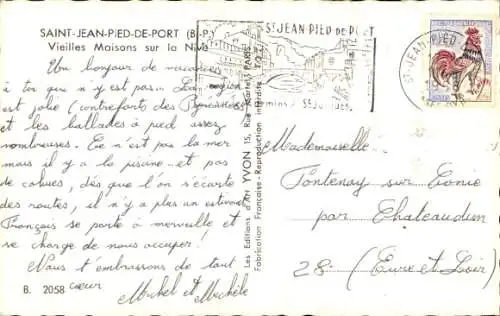 SAINT-JEAN-PIED-DE-PORT (B.-P.)
Vieilles Maisons sur la Nive
Un bonjour de vacances
à toi qui n'y est pas... La région
est jolie (contreforts des Pyrénées)
et les ballades à pied assez
nombreuses. Ce n'est pas la mer
mais il y a la piscine... et pas
de cohues, dès que l'on s'écarte
des routes, il n'y a plus un estivant
Français se porte à merveille et
se charge de nous occuper!
Nous t'embrassons de tout
cœur
Michel et Michèle
B. 2058
Les Editions d'Art YVON 15, Rue Martel, PARIS
Fabrication Française - Reproduction interdite
St JEAN PIED DE PORT
St-JEAN-PIED-
Mademoiselle
Fontenay sur Conie
par Chateaudun
28 (Eure et Loir)